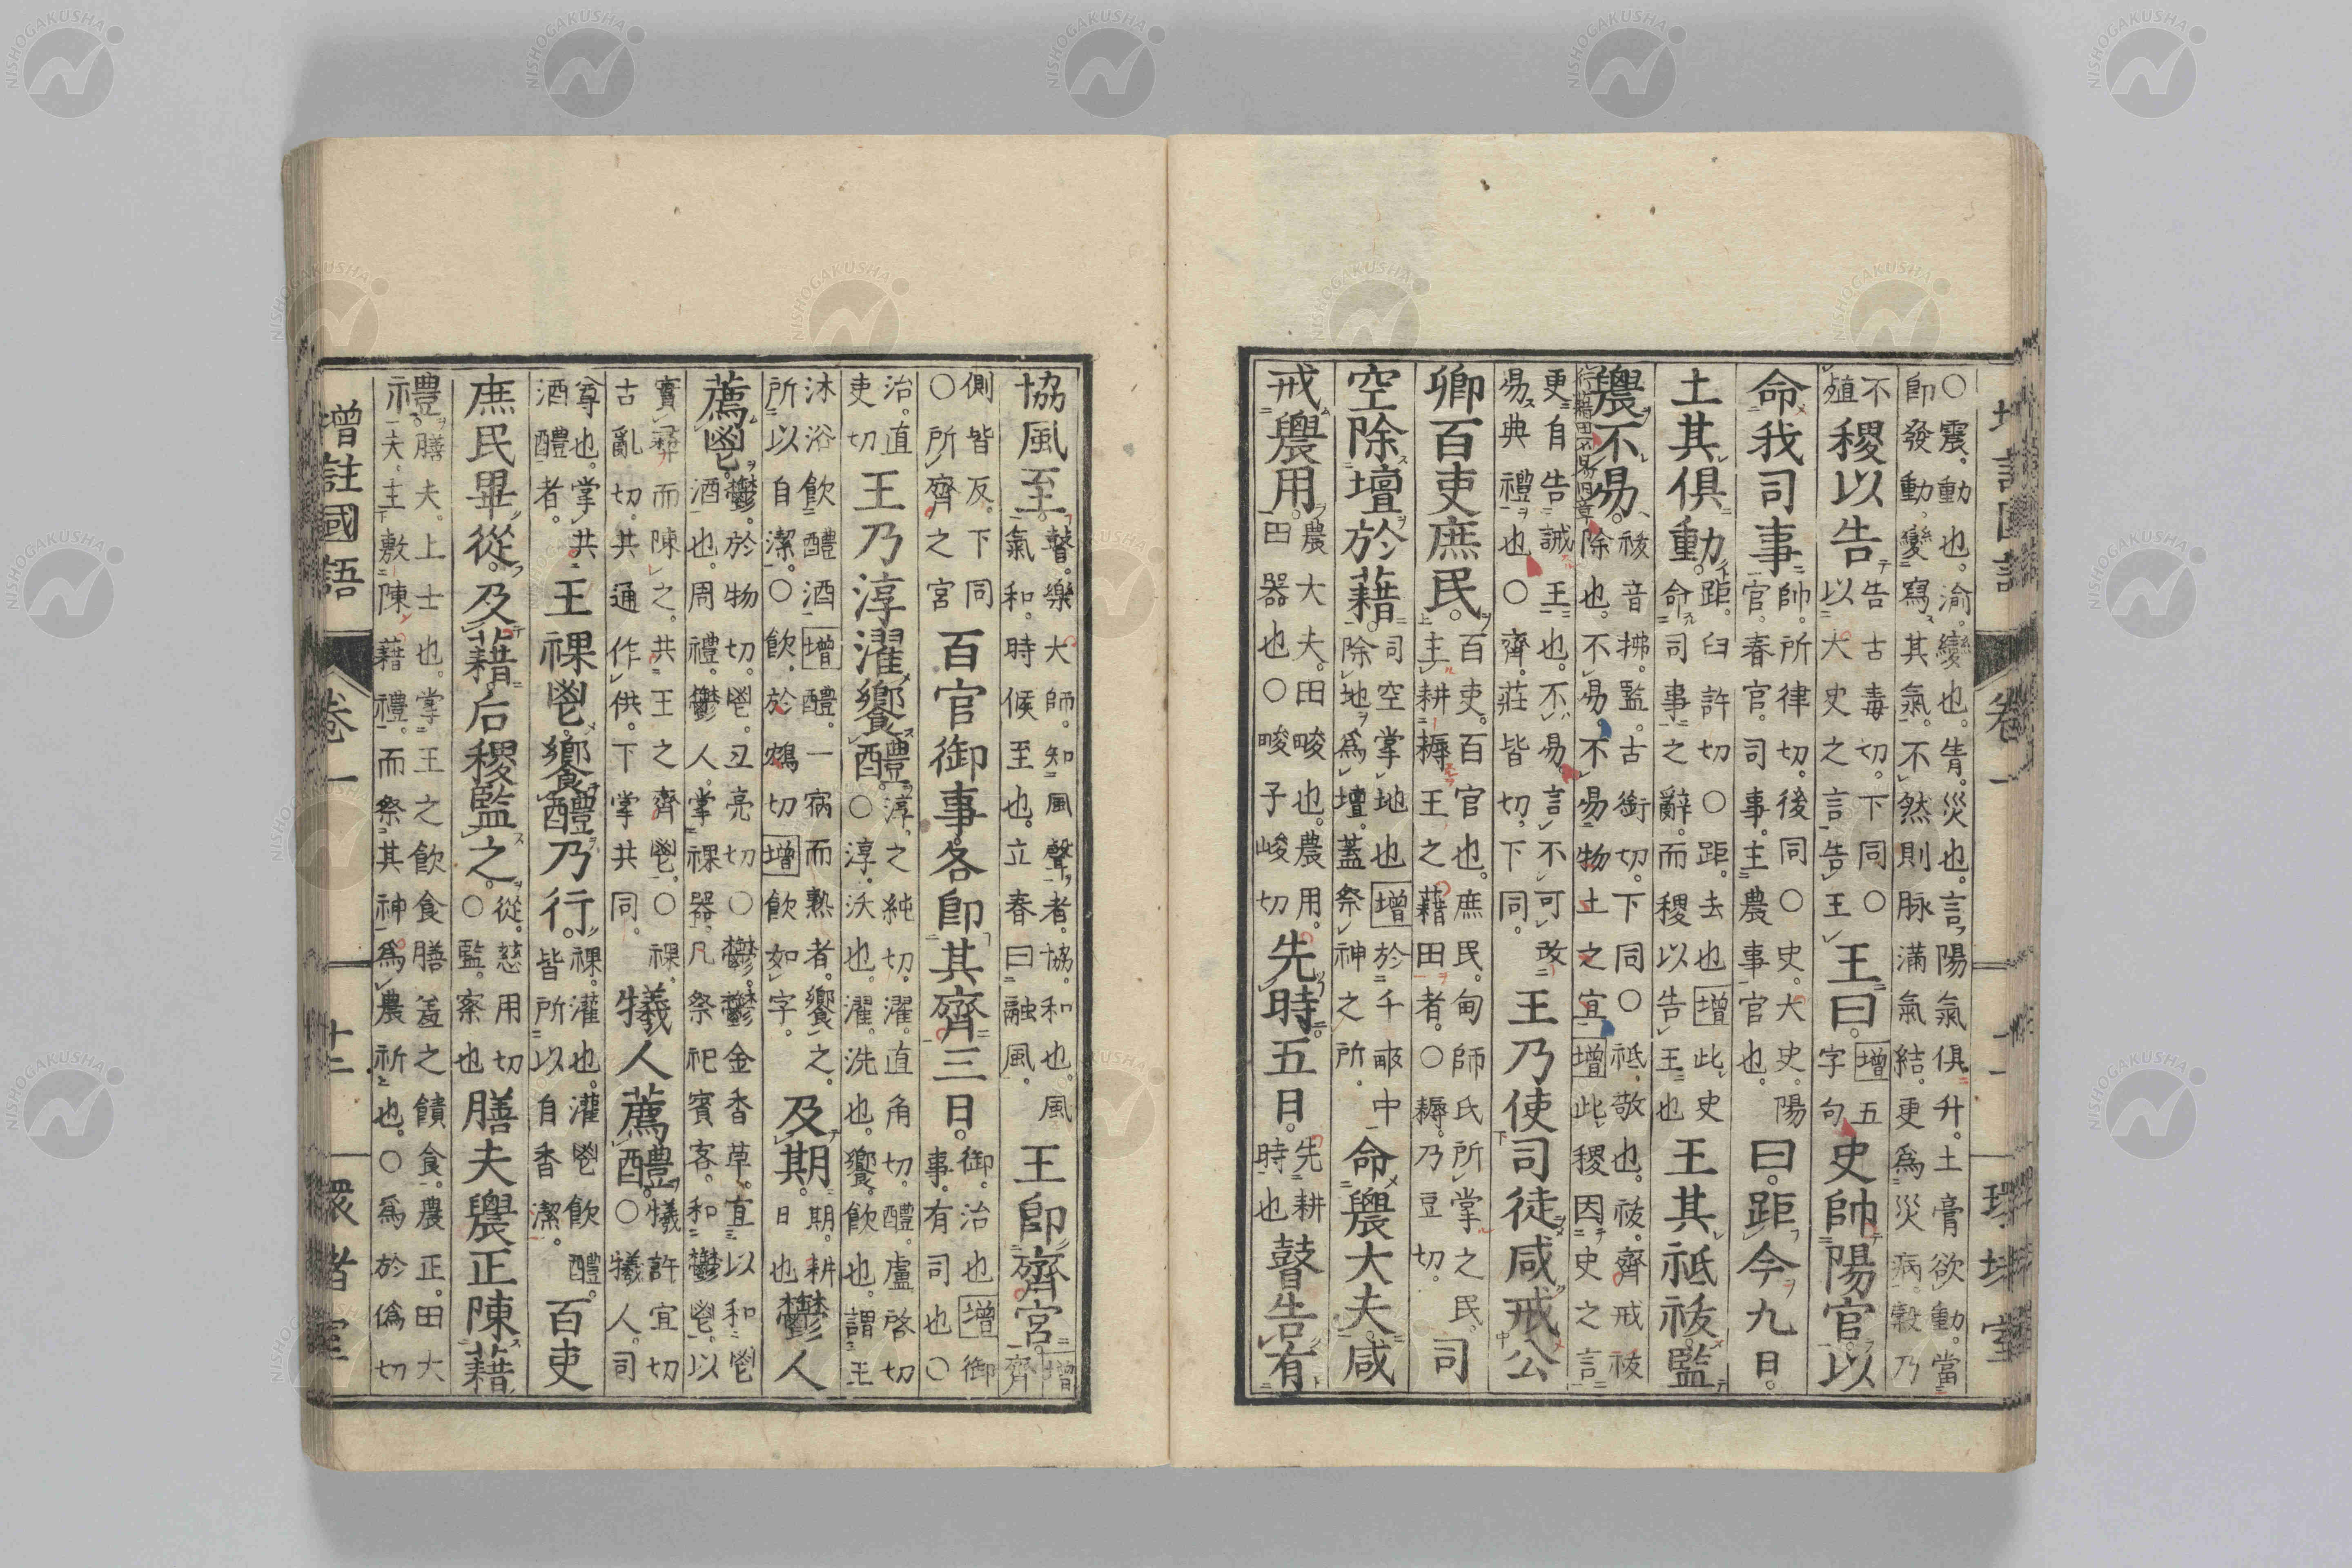 ○震。動也。渝。變也。眚。災也。言陽氣俱升。土膏欲動。當
即發動。變寫其氣。不然則脉滿氣結。更爲災病。穀乃
不殖稷以告告古毒切。下同○以大史之言告王王曰。增五字句史帥陽官以
命我司事帥。所律切。後同○史。大史。陽官。春官。司事。主農事官也。曰。距今九日。
土其俱動。距。臼許切○距。去也增此史命司事之辭。而稷以告王也王其祗祓。監
農不易。祓音拂。監。古銜切。下同○祗。敬也。祓。齊戒祓除也。不易。不易物土之宜增此稷因史之言
更自告誡王也。不易言不可改易典禮也○齊。莊皆切。下同。王乃使司徒咸戒公
卿百吏庶民。百吏。百官也。庶民。甸師氏所掌之民。主耕耨王之藉田者。○耨。乃豆切。司
空除壇於藉。司空掌地也增於千畞中除地爲壇。蓋祭神之所。命農大夫。咸
戒農用。農大夫。田畯也。農用。田器也○畯子峻切先時五日。先耕時也瞽告有
協風至。瞽。樂大師。知風聲者。協。和也。風氣和。時候至也。立春曰融風。王卽齊宮。增齊
側皆反。下同○所齊之宮百官御事。各卽其齊三日。御。治也增御事。有司也○
治。直吏切王乃淳濯饗醴。淳。之純切。濯。直角切。醴。盧啓切○淳。沃也。濯。洗也。饗。飮也。謂王
沐浴飮醴酒增醴。一宿而熟者。饗之。所以自潔。○飮。於鴆切增飮如字。及期。期。耕日也鬱人
薦鬯。鬱。於物切。鬯。丑亮切○鬱。鬱金香草。宜以和鬯酒也。周禮。鬱人。掌祼器。凡祭祀賓客。和鬱鬯。以
實彝而陳之。共王之齊鬯。○祼。古亂切。共通作供。下掌共同。犧人薦醴。犧許宜切○犧人。司
尊也。掌共酒醴者。王祼鬯。饗醴乃行。祼。灌也。灌鬯飮醴。皆所以自香潔。百吏
庶民畢從。及藉。后稷監之。從。慈用切○監。察也膳夫農正陳藉
禮。膳夫。上士也。掌王之飮食膳羞之饋食。農正。田大夫。主敷陳藉禮。而祭其神爲農祈也。○爲於僞切
增註國語 卷一 十二 環堵室